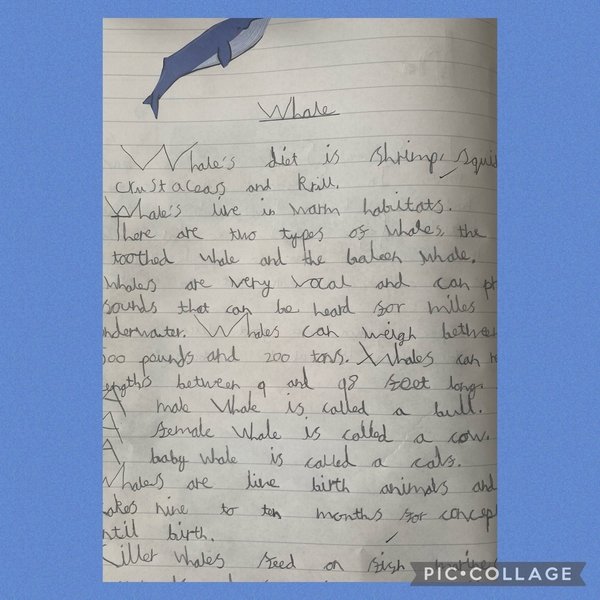 Whale
Whale's diet is shrimp, squid
crustaceas and krill.
Whale's live in warm habitats.
There are two types of whales the
toothed whale and the baleen whale.
Whales are very vocal and can
sounds that can be heard for miles
underwater. Whales can weigh between
pounds and 200 tons. Whales can
lengths between 9 and 98 feet long.
A male whale is called a bull.
A female whale is called a cow.
A baby whale is called a calf.
Whales are live birth animals and
takes nine to ten months for
until birth.
Killer whales feed on fish
PIC•COLLAGE